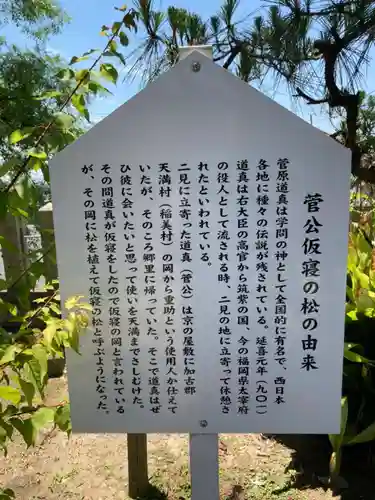 菅公仮寝の松の由来
菅原道真は学問の神として全国的に有名で、西日本
各地に種々の伝説が残されている。延喜元年（九〇一）
道真は右大臣の高官から筑紫の国、今の福岡県太宰府
の役人として流される時、二見の地に立寄って休憩さ
れたといわれている。
二見に立寄った道真（菅公）は京の屋敷に加古郡
天満村（稲美村）の岡から重助という使用人が仕えて
いたが、そのころ郷里に帰っていた。そこで道真はぜ
ひ彼に会いたいと思って使いを天満までさしむけた。
その間道真が仮寝をしたので仮寝の岡とで言われている
が、その岡に松を植えて仮寝の松と呼ぶようになった。